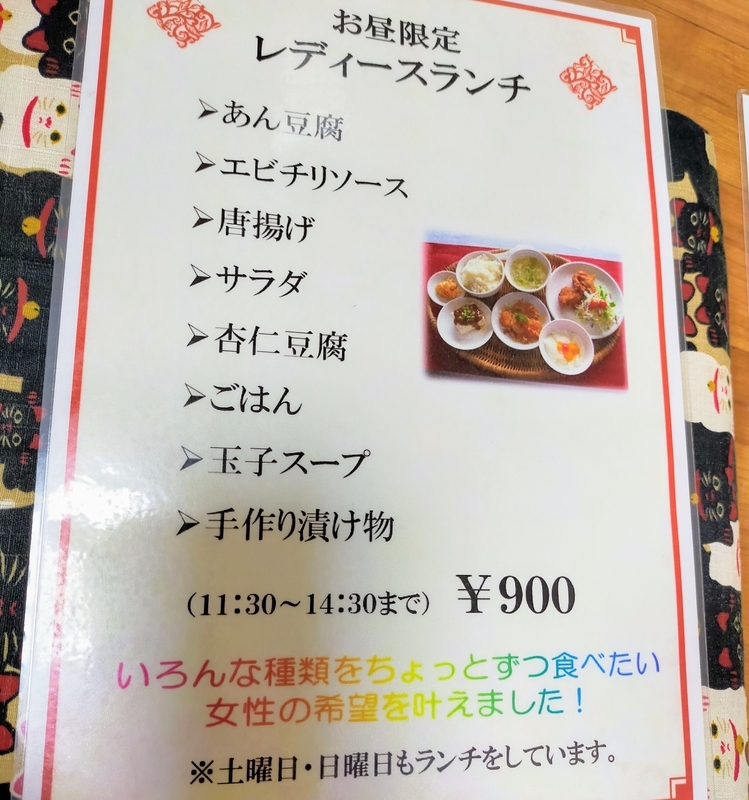 お昼限定
レディースランチ
➢あん豆腐
➢エビチリソース
➢唐揚げ
➢サラダ
➢杏仁豆腐
➢ごはん
➢玉子スープ
➢手作り漬け物
（11:30～14:30まで） ￥900
いろんな種類をちょっとずつ食べたい
女性の希望を叶えました！
※土曜日・日曜日もランチをしています。